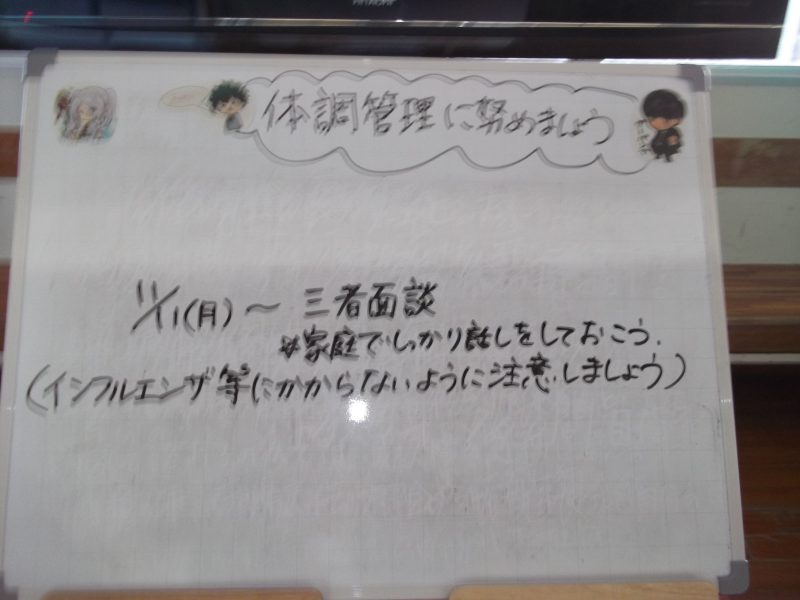 HITACHI
体調管理に努めましょう
11/11(月)～ 三者面談
※家庭でしっかり話しをしておこう.
(インフルエンザ等にかからないように注意しましょう)